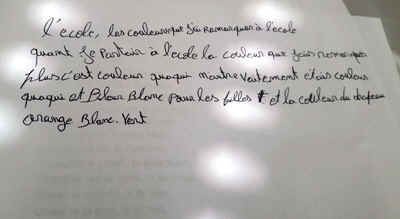 l'école, les couleurs que j'ai Remarquer à l'école
quant Je Partair à l'école la couleur que j'ais remarquer
plus c'est couleur quaqui montre Vêtement étais couleur
quaqui et Bleau Blanc Pour les filles et la couleur du drapeau
orange Blanc. Vert